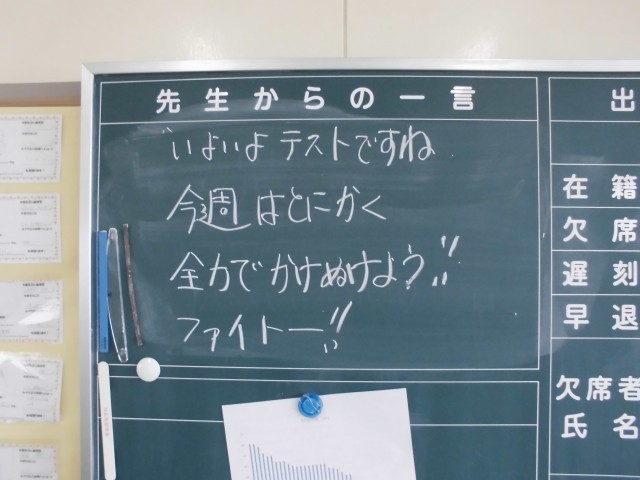 先生からの一言
いよいよテストですね
今週はとにかく
全力でかけぬけよう!!
ファイトー!!
出
在籍
欠席
遅刻
早退
欠席者
氏名